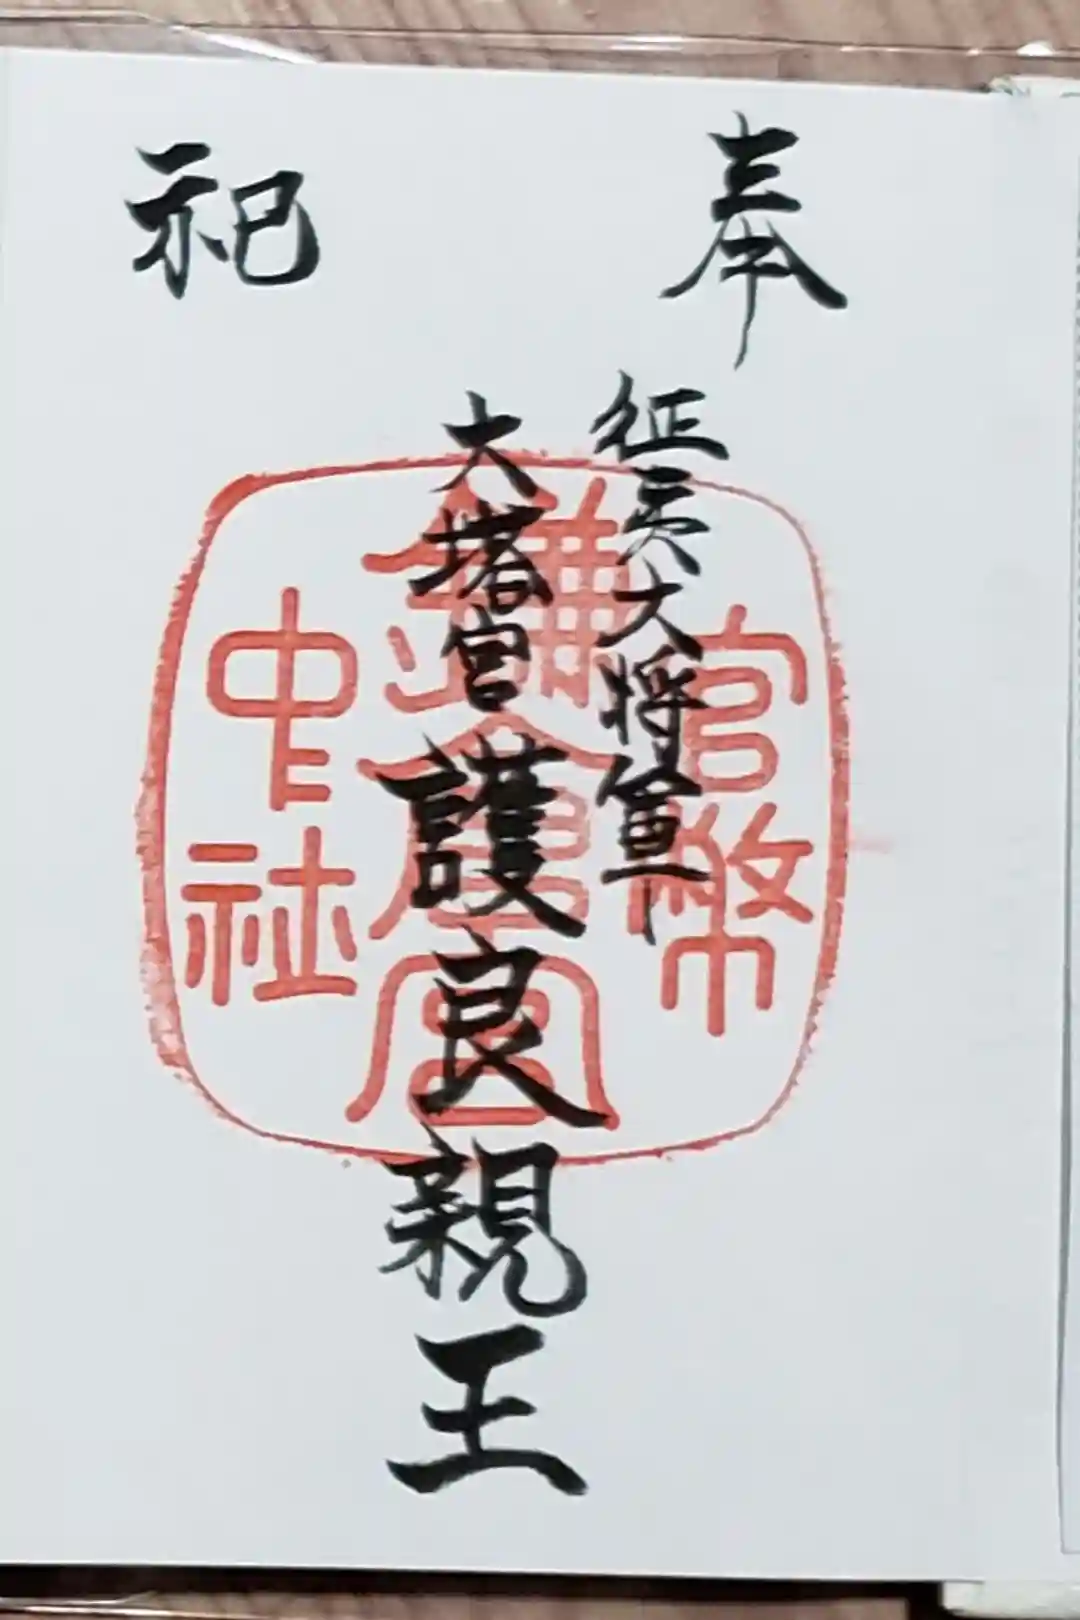 奉
祀
征夷大将軍
大塔宮護良親王
官幣
鎌倉宮
中社